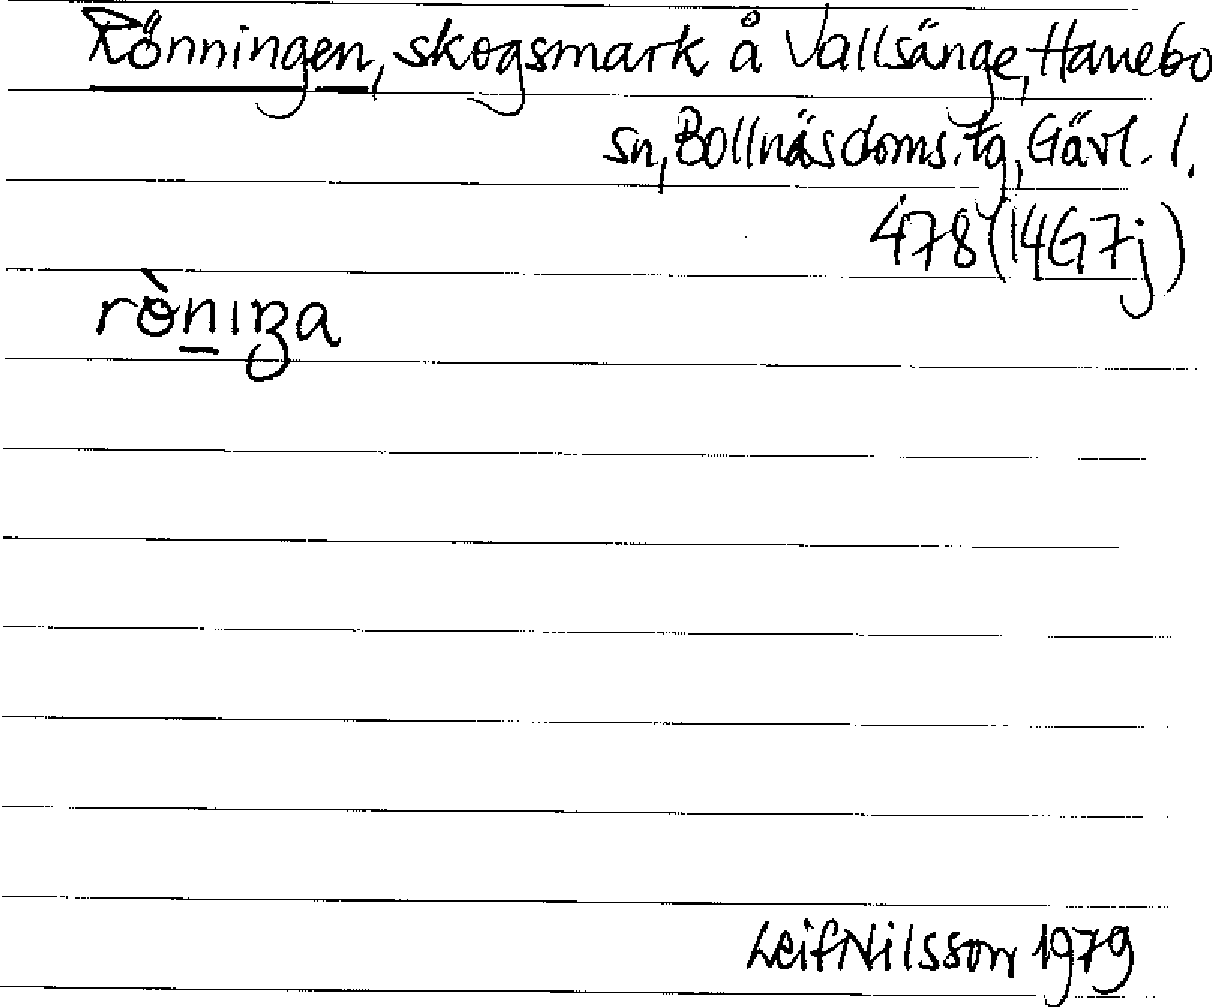 Rönningen, skogsmark å Vallsänge, Hanebo
sn, Bollnäs doms.tg, Gävl. l.
478 (14G7j)
rònıŋa
Leif Nilsson 1979